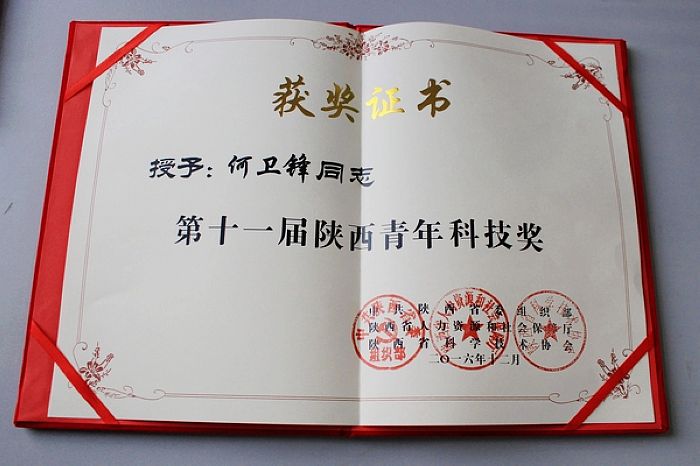 获奖证书
授予：何卫锋同志
第十一届陕西青年科技奖
中共陕西省委组织部
陕西省人力资源和社会保障厅
陕西省科学技术协会
二〇一六年十二月
组织部